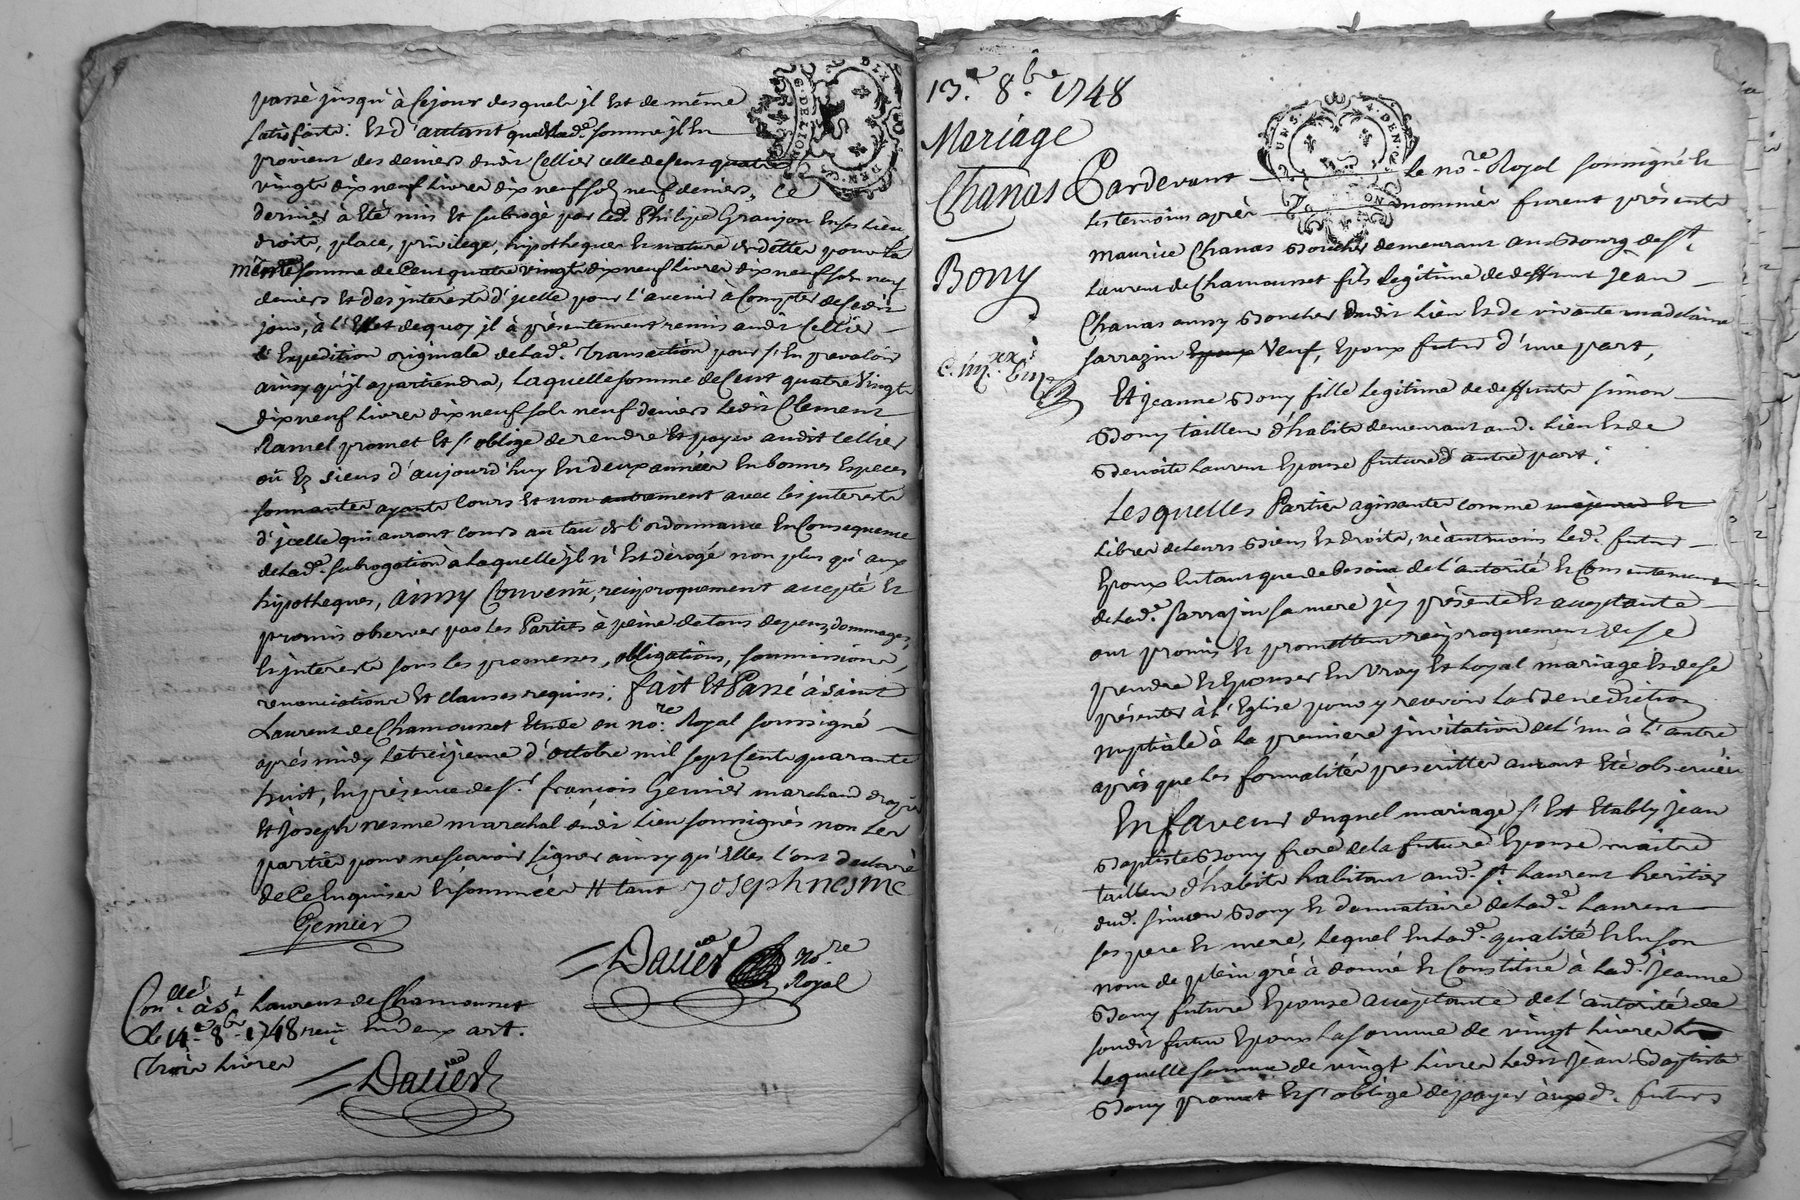 passé jusqu'à ce jour desquels il est de même
satisfaite: Et d'autant que lad.e somme il en
provient des deniers dudit Cellier celle de Cent quatre
vingts dix neuf livres dix neuf sols neuf deniers, Ce
dernier à Eté mis et subrogé par led. Philipe Granjon en ses lieu
droits, place, privilege, hypotheques et nature de dette pour la
même somme de Cent quatre vingts dix neuf livres dix neuf sols neuf
deniers et des interests d'jcelle pour l'avenir à Compter de Ce dit
jour, à l'Effet de quoy il à présentement remis audit Cellier
l'Expedition originale de lad.e Transaction pour s'En prevaloir
ainsy qu'jl apartiendra, laquelle somme de Cent quatre vingts
dix neuf livres dix neuf sols neuf deniers ledit Clement
Ramel promet Et s'oblige de rendre et payer audit Cellier
où Es siens d'aujourd'huy En deux années En bonnes Especes
sonnantes ayants cours Et non autrement avec les jnterests
d'jcelle qui auront cours au taux de l'ordonnance En Consequence
de lad.e subrogation à laquelle jl n'Est dérogé non plus qu'aux
hypotheques, ainsy Convenu, reciproquement accepté Et
promis observer par les Parties à peine de tous depens, dommages,
Et jnterests sous les promesses, obligations, soumissions,
renonciations Et clauses requises; fait Et Passé à saint
Laurent de Chamousset Etude du no.re Royal soussigné
après midy le treizieme d'octobre mil sept Cents quarante
huit, En présence de s.r françois Gemier marchand drapier
Et joseph nesme marechal dudit lieu soussignés non les
parties pour ne sçavoir signer ainsy qu'Elles l'ont declaré
de Ce Enquises Et sommées Et tant josephnesme
Gemier
Daviet no.re
Royal
Con.llé à s.t Laurent de Chamousset
le 14.e 8.bre 1748 reçu En deux art.
Trois livres
Daviet
13.e 8.bre 1748
Mariage
Chanas
Bony
Pardevant le no.re Royal soussigné Et
les temoins après nommés furent présents
Maurice Chanas Boucher demeurant au Bourg de s.t
Laurent de Chamousset fils legitime de deffunt jean
Chanas aussy Boucher dudit lieu Et de vivante madelaine
sarrazin Epoux veuf, Epoux futur d'une part,
Et jeanne Bony fille legitime de deffunts simon
Bony tailleur d'habits demeurant aud. lieu Et de
Benoite Laurent Epouse future d'autre part;
Lesquelles Parties agissantes comme majeures Et
libres de leurs Biens Et droits, nèantmoins led. futur
Epoux En tant que de besoin de l'autorité Et Consentement
de lad.e sarrazin sa mere jcy présente Et acceptante
ont promis Et promettent reciproquement de se
prendre Et Epouser En vray Et loyal mariage Et de se
présenter à l'Eglise pour y recevoir la Benediction
nuptiale à la premiere jnvitation de l'un à l'autre
après que les formalités prescrittes auront Eté observées
En faveur duquel mariage s'Est Etably jean
Baptiste Bony frere de la future Epouse maitre
tailleur d'habits habitant aud. s.t Laurent heritier
dud. simon Bony Et donnataire de lad.e Laurent
ses pere Et mere, lequel En lad.e qualité Et En son
nom de plein gré à donné Et Constitué à lad. jeanne
Bony future Epouse acceptante de l'autorité de
son dit futur Epoux la somme de vingt livres
laquelle somme de vingt livres ledit jean Baptiste
Bony promet Et s'oblige de payer auxd. futurs